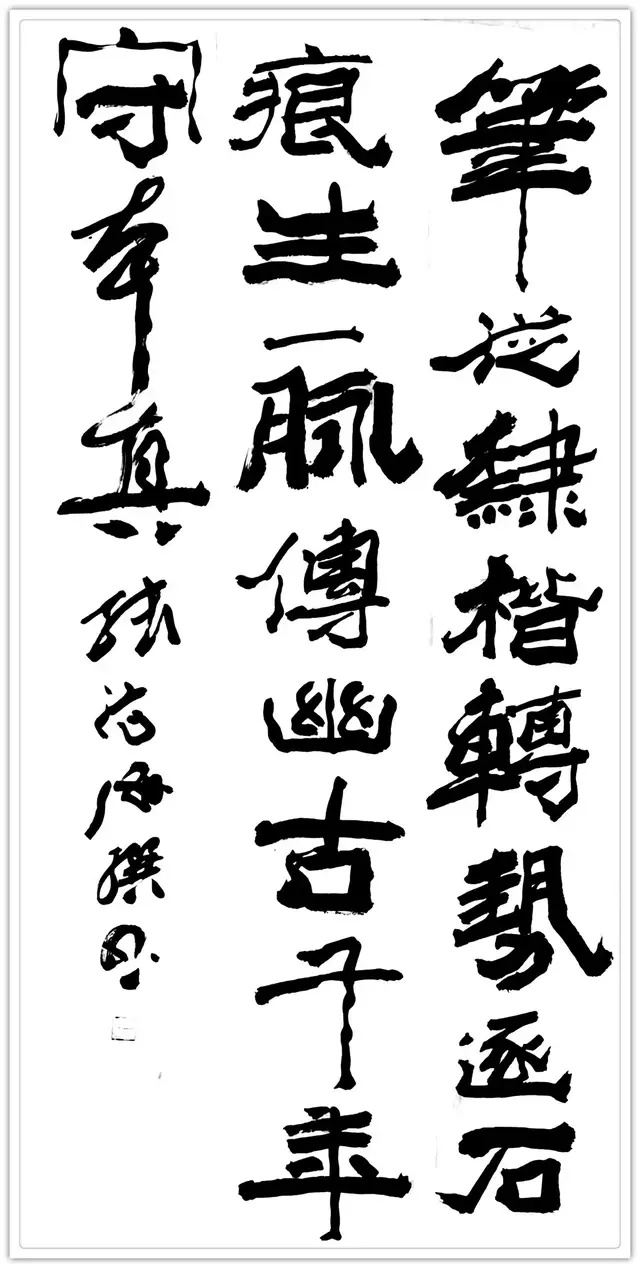 筆從隸楷轉勢逐石
痕生一脈傳幽古千年
守本真撰书